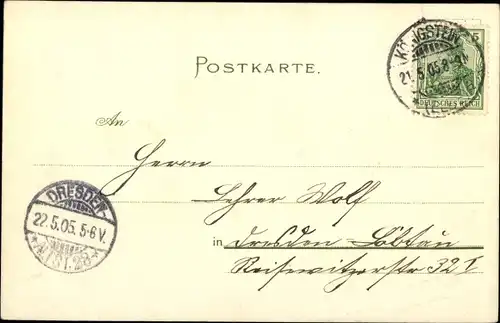 POSTKARTE.
KÖNIGSTEIN
21.5.05.8-9V.
5
DEUTSCHES REICH
An
Herrn
Lehrer Wolf
in Dresden-Löbtau
Reisewitzerstr 32 I
DRESDEN-
22.5.05.5-6V.